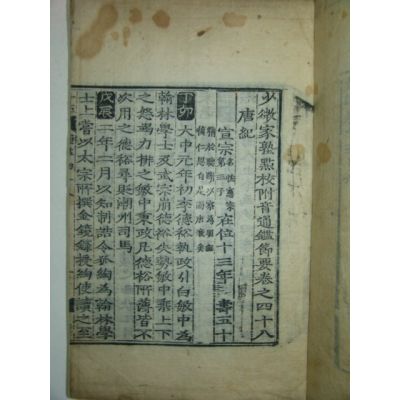 少微家塾點校附音通鑑節要卷之四十八
唐紀
宣宗名忱憲宗第三子在位十三年壽五十
精於聽斷以察爲明
無復仁恩自是而唐衰矣
丁卯大中元年初李德裕執政引白敏中爲
翰林學士及武宗崩德裕失勢敏中乘上下
之怒竭力排之敏中秉政凡德裕所薄皆不
次用之德裕尋貶潮州司馬
戊辰二年二月以知制誥令狐綯爲翰林學
士上嘗以太宗所撰金鏡錄授綯使讀之至